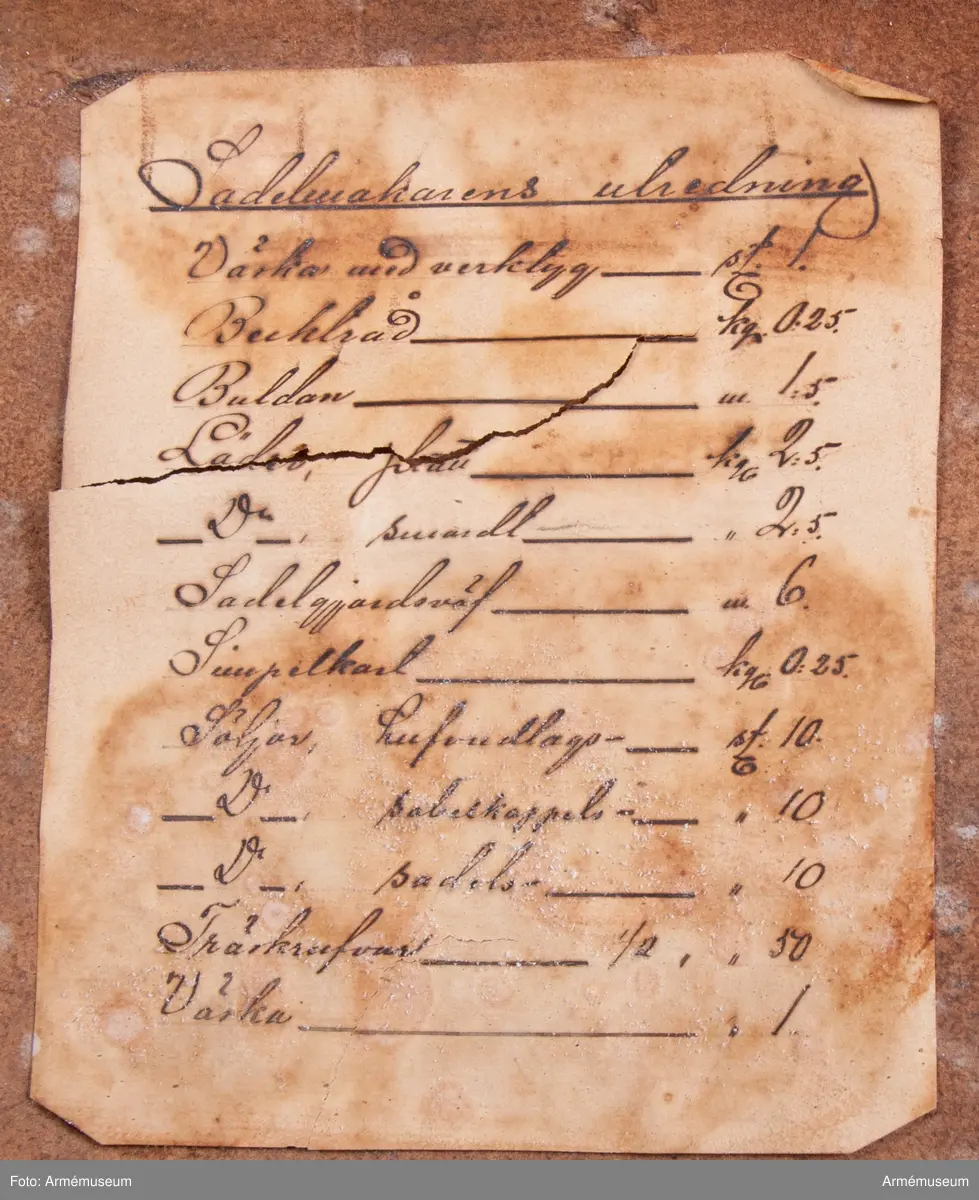 Sadelmakarens utredning
Väska med verktyg st. 1.
Becktråd kg. 0.25.
Buldan m. 1.5.
Läder, kg. 2.5.
D:o, smordt " 2.5.
Sadelgjordsväf m. 6.
Simpelkarl kg. 0.25.
Söljor, hufvudlags- st. 10.
D:o, sabelkoppels- " 10
D:o, sadels- " 10
Träskrufvar 1/2 " " 50
Väska " 1.
Foto: Armémuseum Armémuseum